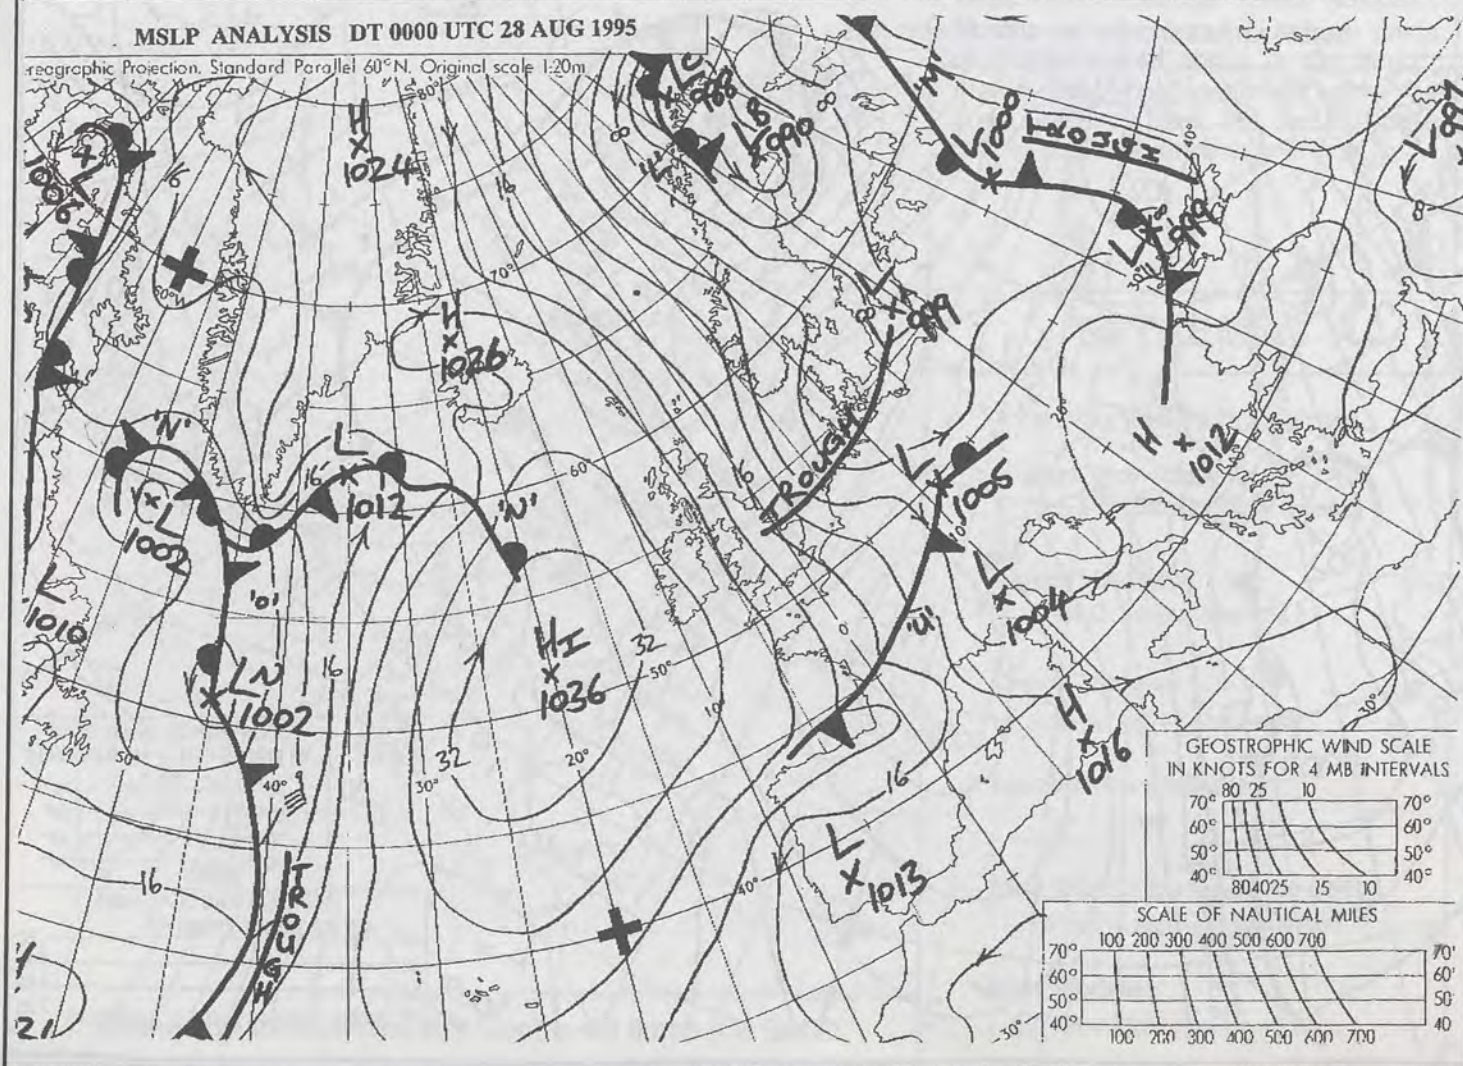 MSLP ANALYSIS DT 0000 UTC 28 AUG 1995
reographic Projection. Standard Parallel 60°N. Original scale 1:20m
80°
H
1024
988
LB
990
'M'
L
1000
TROUGH
40°
L
997
L
1006
16
60°N
16
8
8
8
'L'
70°
H
1026
L
999
L
999
30°
8
'N'
L
1002
16
L
1012
'N'
60°
16
TROUGH
L
1005
H
1012
L
1010
'O'
LN
1002
16
HI
1036
32
32
50°
10°
0
10°
'U'
L
1004
H
1016
30°
50°
40°
30°
20°
16
L
1013
40°
16
TROUGH
21
30°
GEOSTROPHIC WIND SCALE
IN KNOTS FOR 4 MB INTERVALS
80 25 10
70° 70°
60° 60°
50° 50°
40° 40°
80 40 25 15 10
SCALE OF NAUTICAL MILES
100 200 300 400 500 600 700
70° 70°
60° 60°
50° 50
40° 40
100 200 300 400 500 600 700